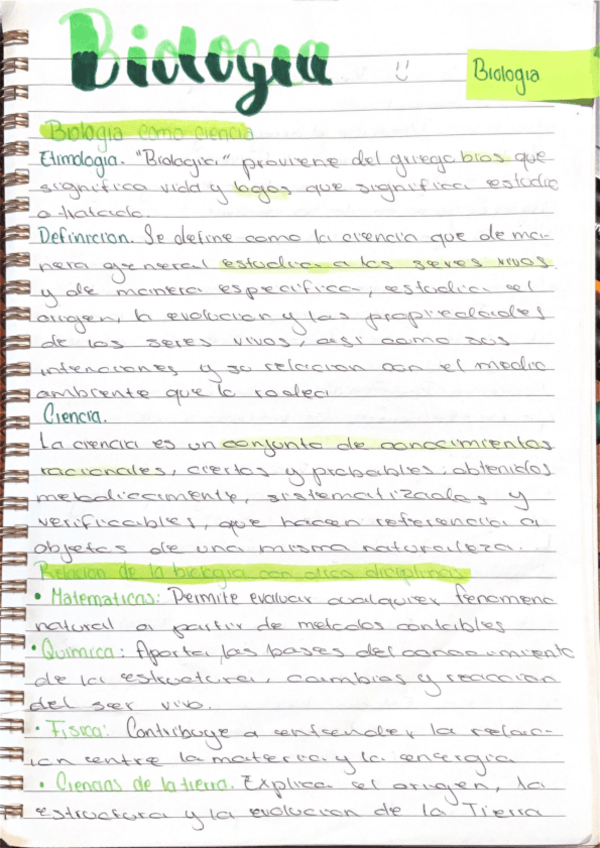 Biologia
Biologia
Biologia como ciencia
Etimologia. "Biologia" proviene del griego bios que
significa vida y logos que significa estudio
o tratado.
Definicion. Se define como la ciencia que de ma-
nera general estudia a los seres vivos
y de manera especifica, estudia el
origen, la evolucion y las propiedades
de los seres vivos, asi como sus
intenciones y su relacion con el medio
ambiente que lo rodea
Ciencia.
La ciencia es un conjunto de conocimientos
racionales, ciertos y probables; obtenidos
metodicamente, sistematizados y
verificables, que hacen referencia a
objetos de una misma naturaleza.
Relacion de la biologia con otras disciplinas
• Matematicas: Permite evaluar cualquier fenomeno
natural a partir de metodos contables
• Quimica: Aporta las bases del conocimiento
de la estructura, cambios y reaccion
del ser vivo.
• Fisica: Contribuye a entender la relac-
ion entre la materia y la energia
• Ciencias de la tierra. Explica el origen, la
estructura y la evolucion de la Tierra